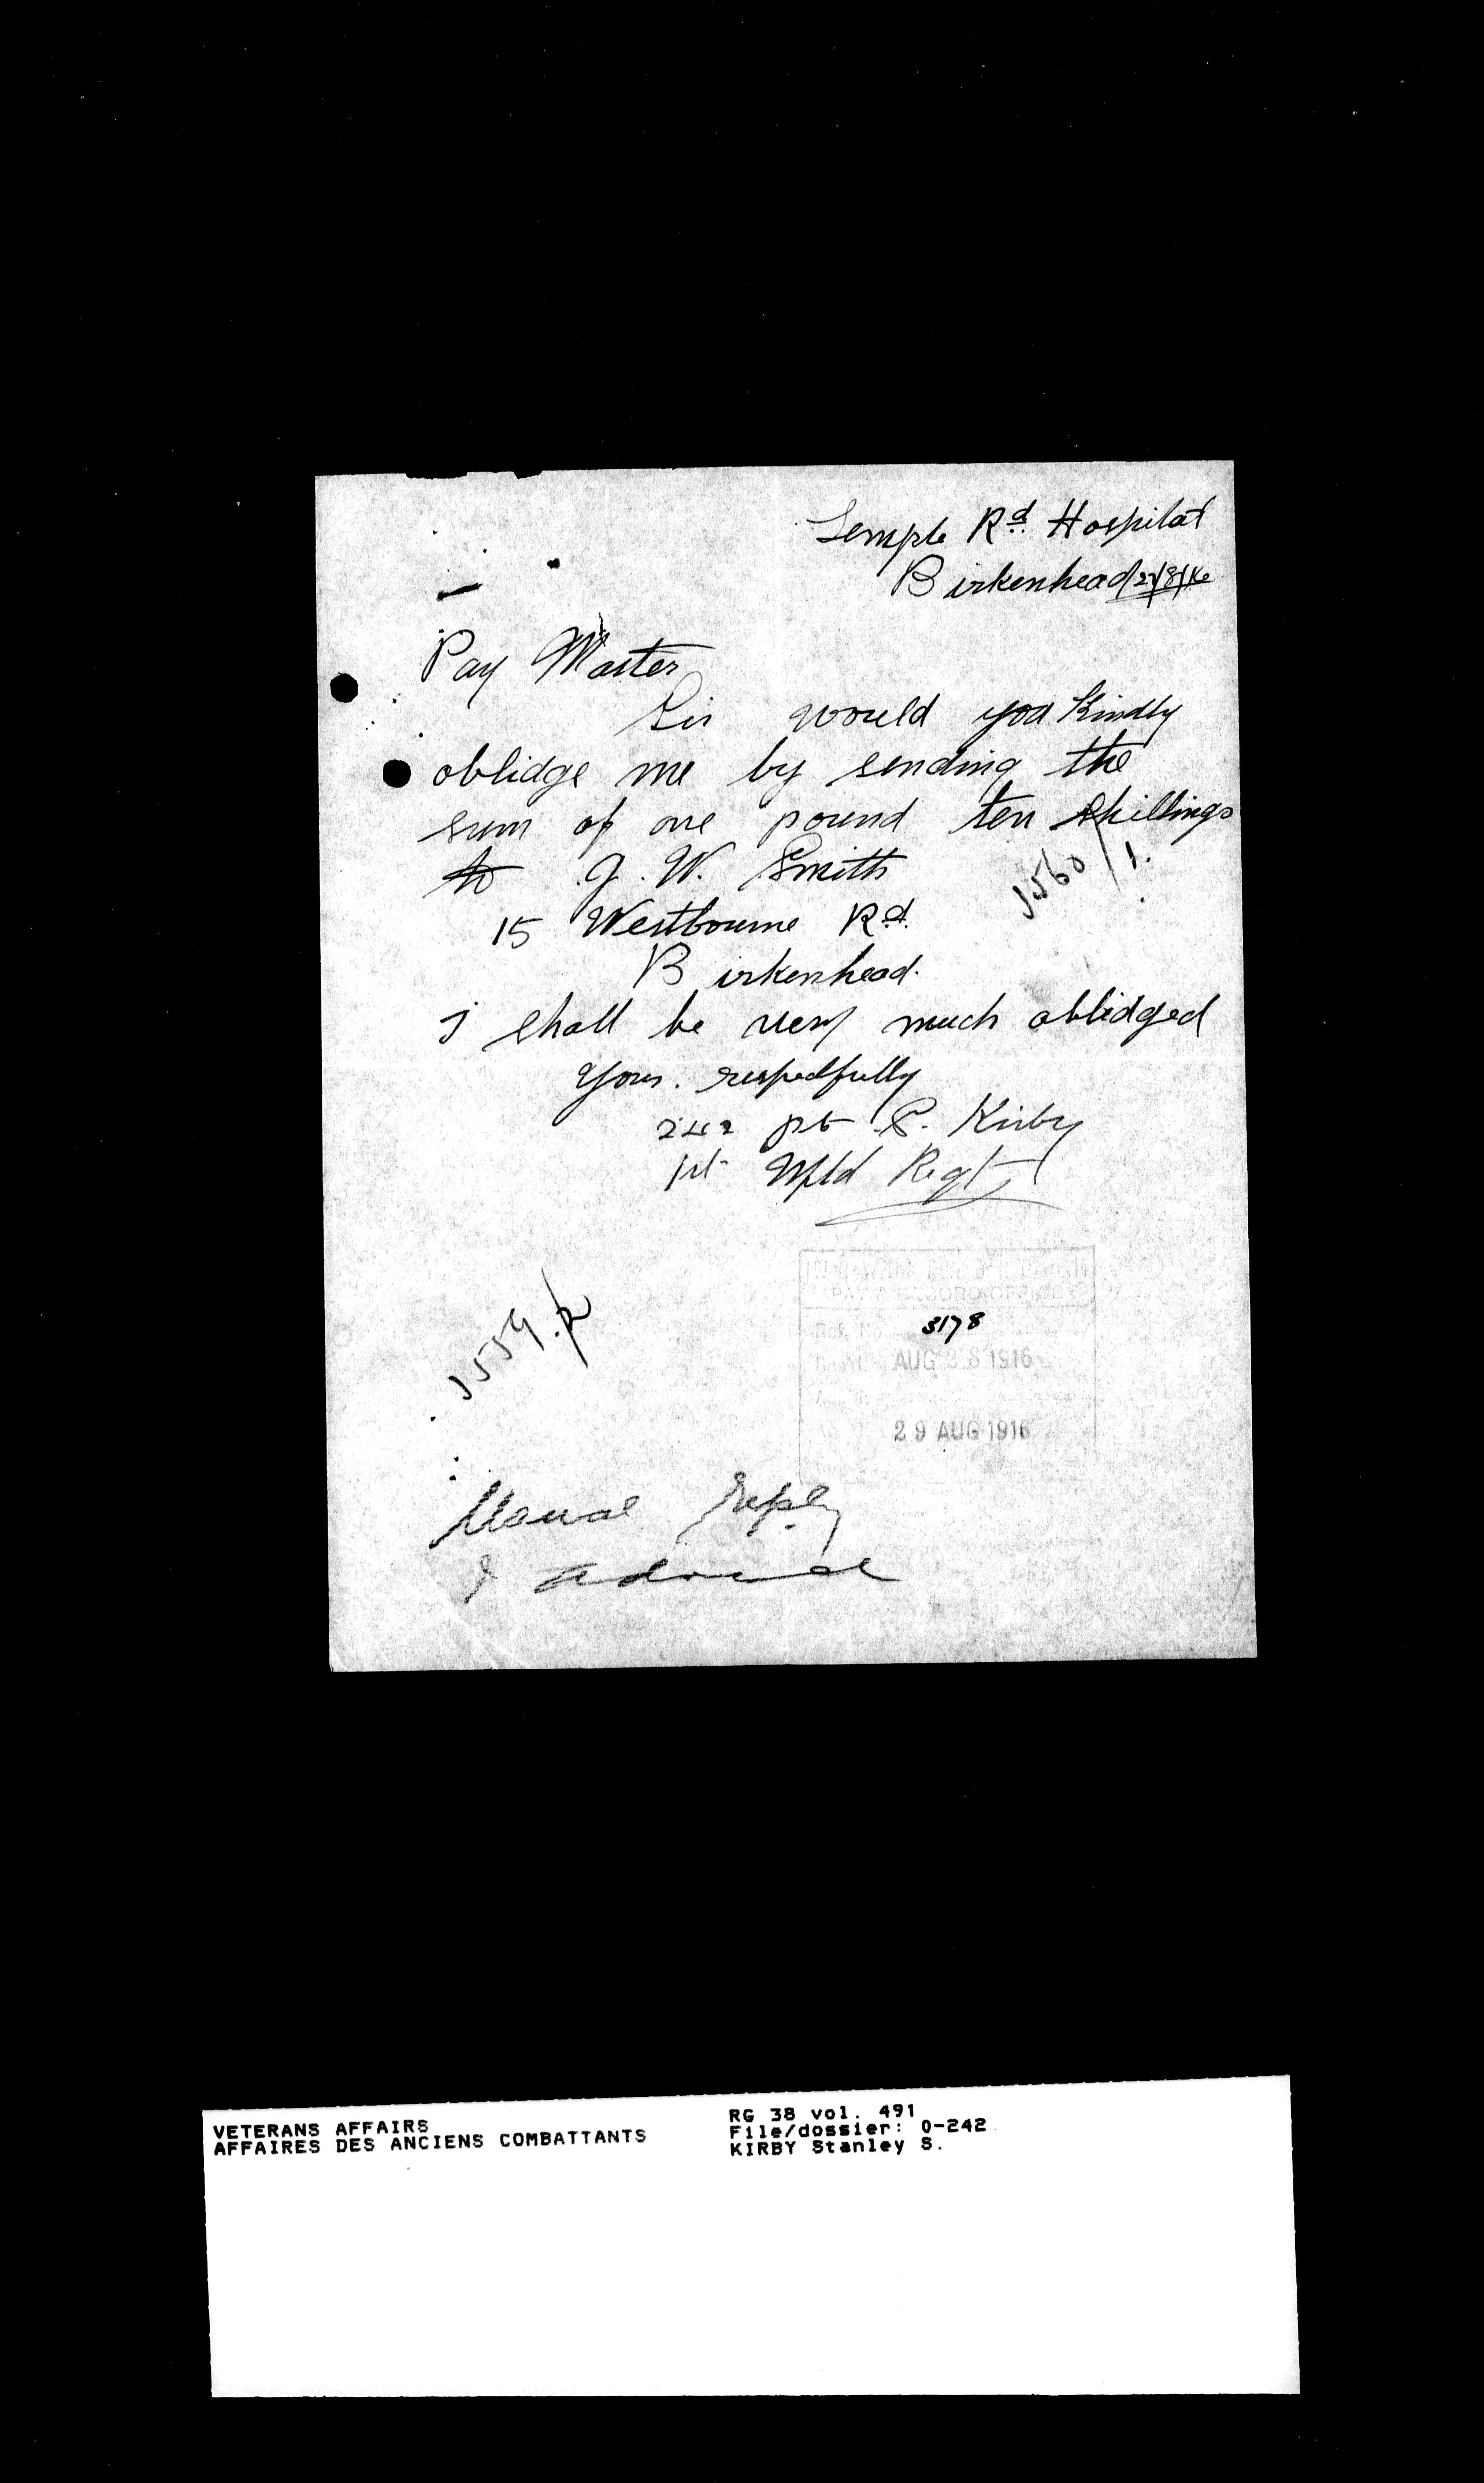 Temple Rd Hospital
Birkenhead 27/8/16
Pay Master
Sir would you Kindly
oblidge me by sending the
sum of one pound ten shillings
to J. W. Smith
1560/1.
15 Westbourne Rd
Birkenhead.
I shall be very much oblidged
Yours. respectfully
242 pt S. Kirby
1st Nfld Regt
3178
AUG 28 1916
1559.
29 AUG 1916
Usual reply
VETERANS AFFAIRS
AFFAIRES DES ANCIENS COMBATTANTS
RG 38 vol. 491
File/dossier: 0-242
KIRBY Stanley S.